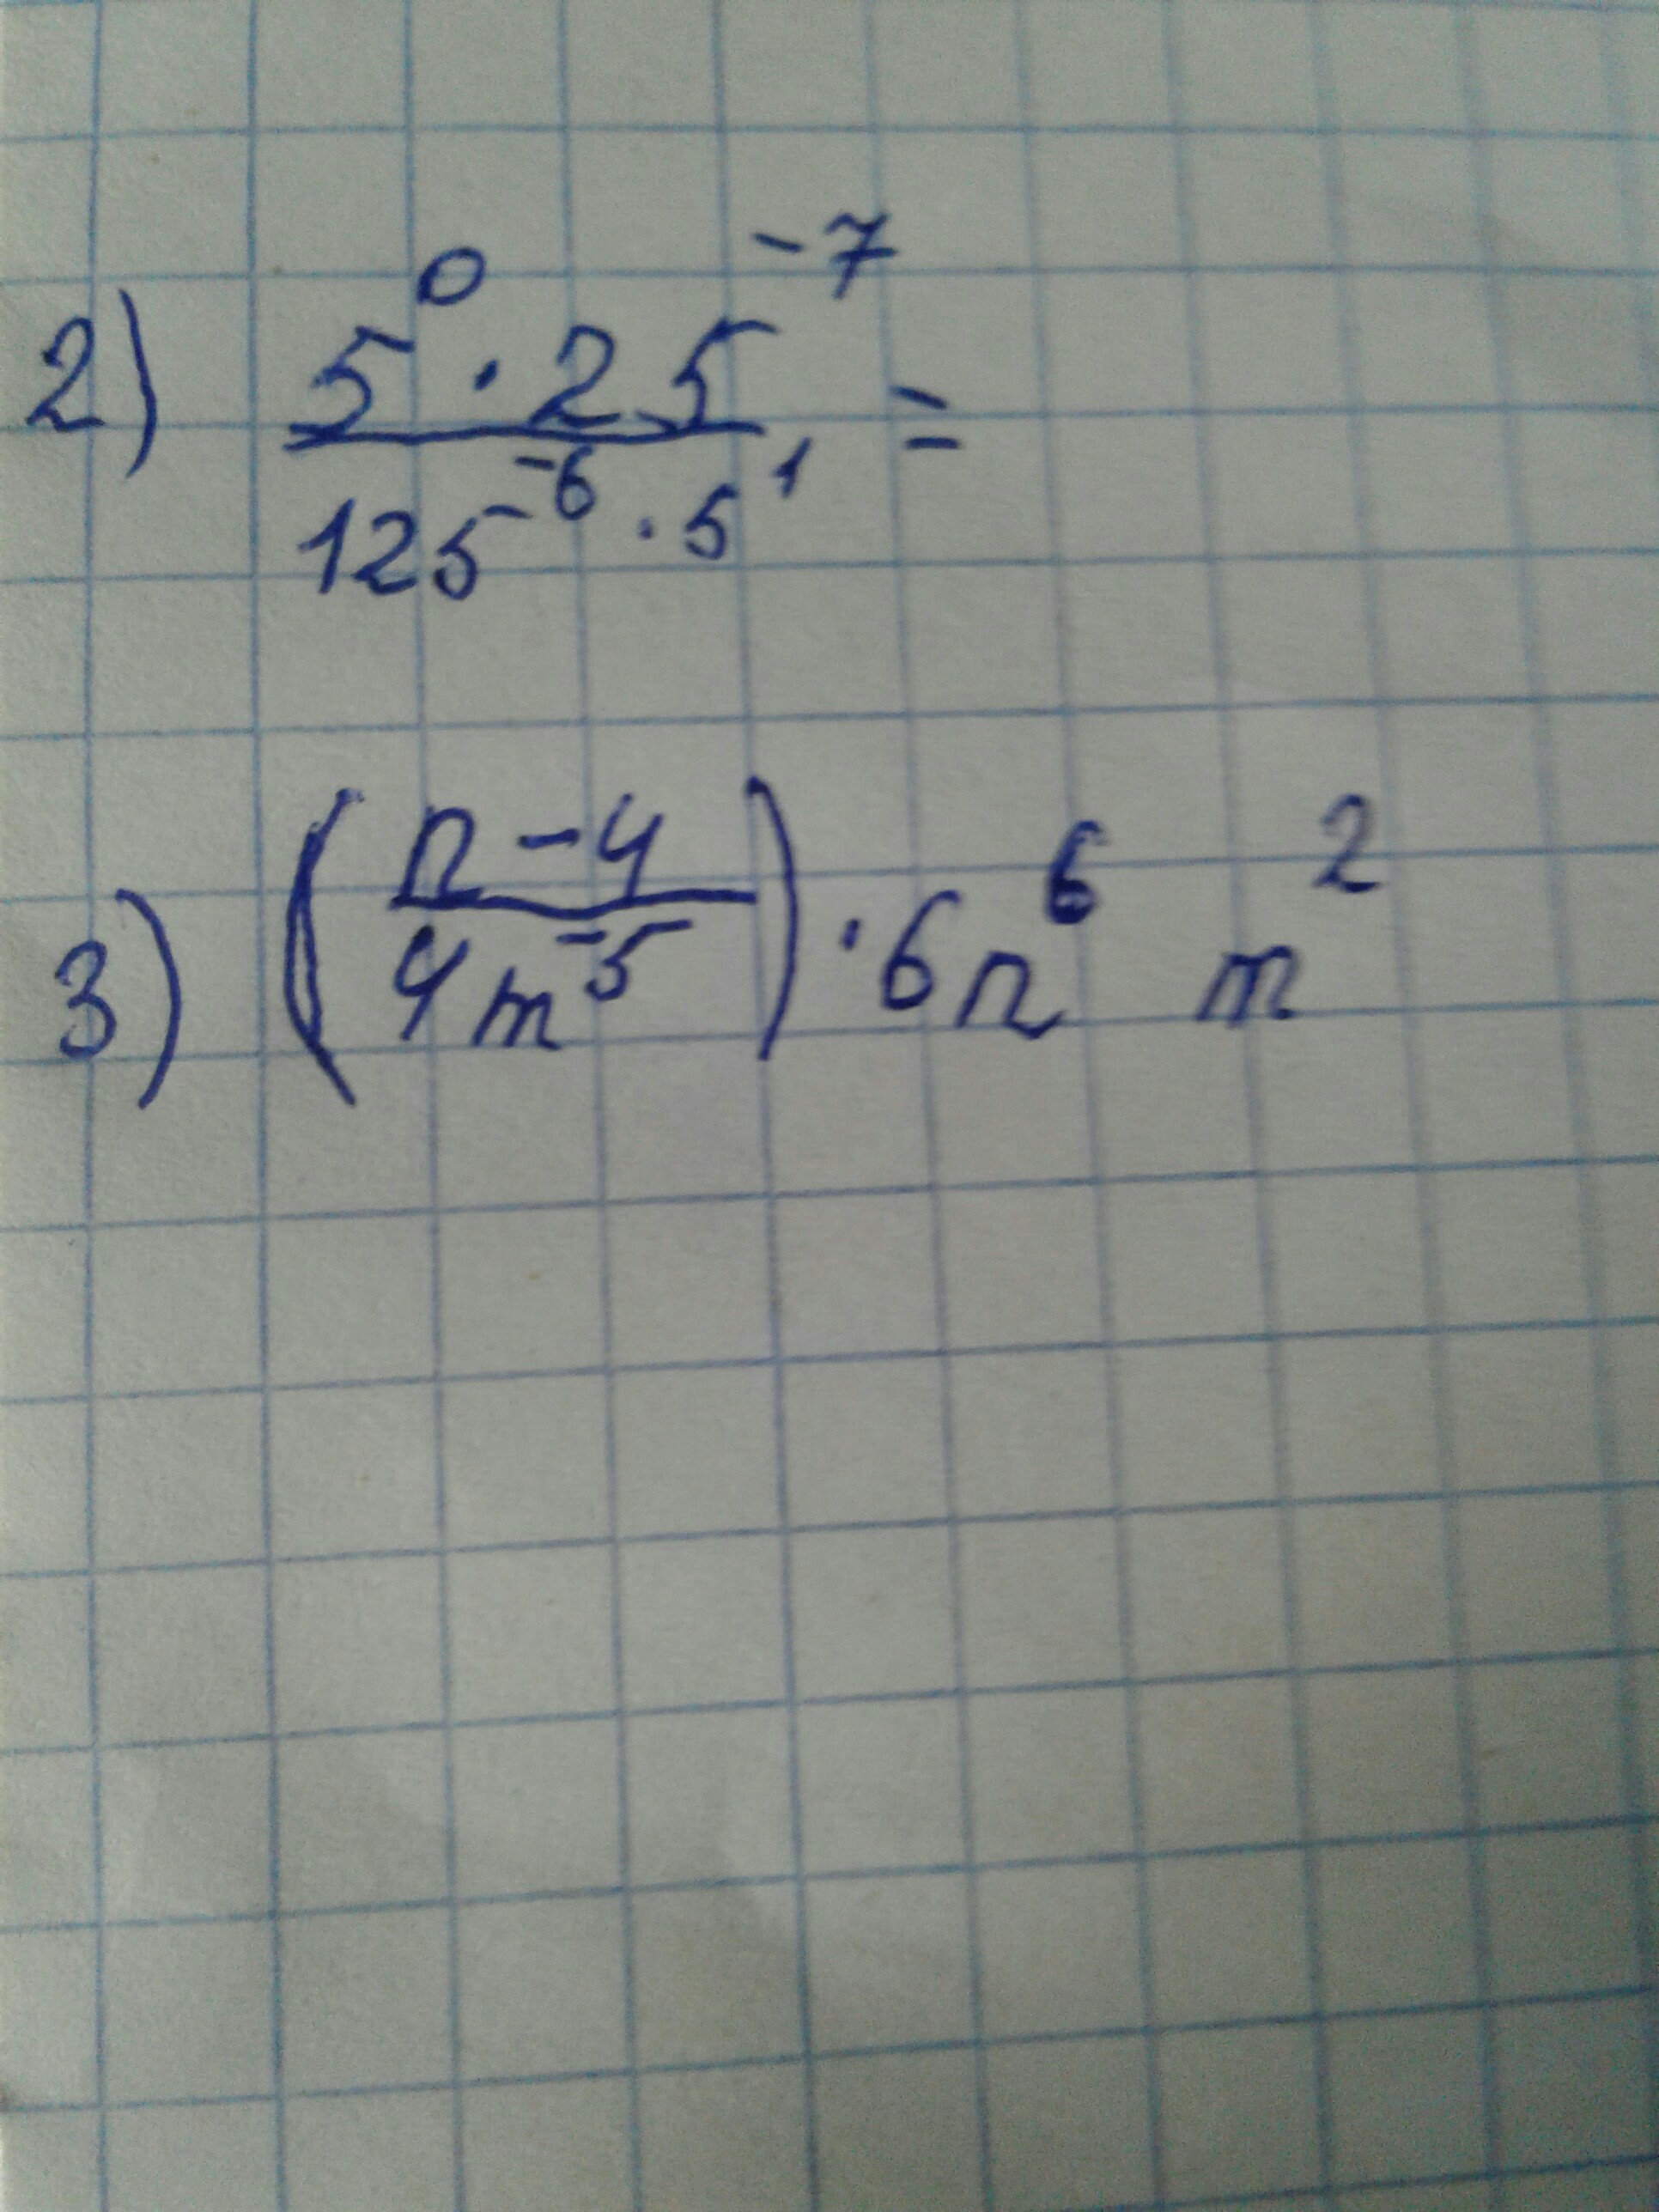 2) 5⁰ · 25⁻⁷ / 125⁻⁶ · 5¹ =
3) (n⁻⁴ / 4m⁻⁵) · 6n⁶ m²